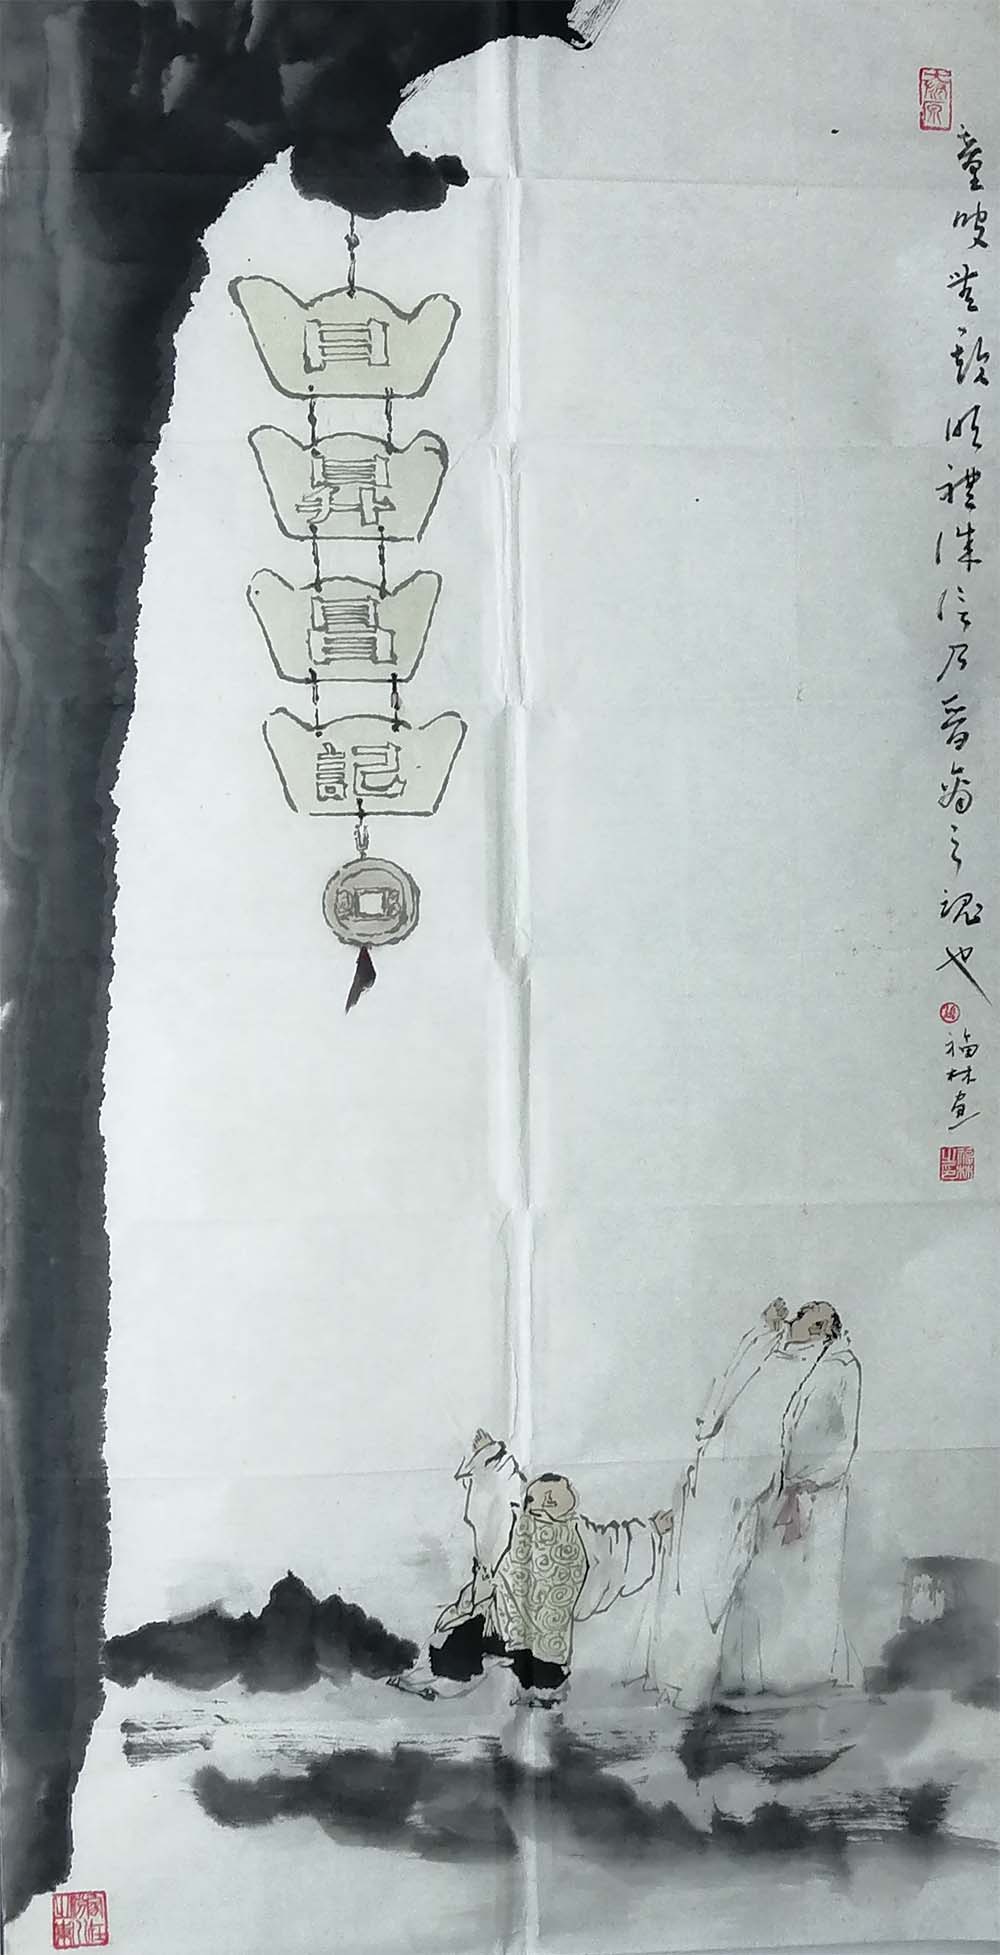 日
昇
昌
記
童叟無欺明禮誠信乃晉商之魂也
福林畫
福林之印